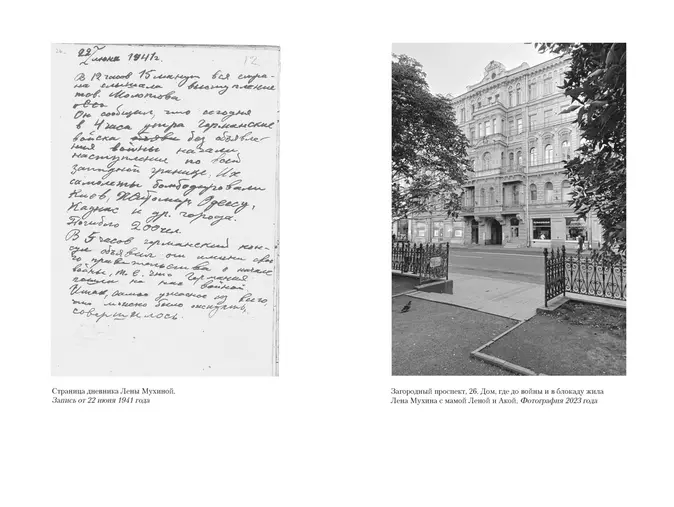 22 июня 1941 г.
12
В 12 часов 15 минут вся стра-
на слышала выступление
тов. Молотова
Он сообщил, что сегодня
в 4 часа утра Германские
войска без объявле-
ния войны начали
наступление по всей
западной границе. Их
самолеты бомбардировали
Киев, Житомир, Одессу,
Каунас и др. города.
Погибло 200 чел.
В 5 часов германский кон-
сул объявил от имени свое-
го правительства о начале
войны, т.е. что Германия
пошла на нас войной.
Итак, самое ужасное из всего
что можно было ожидать,
совершилось.
Страница дневника Лены Мухиной.
Запись от 22 июня 1941 года
Загородный проспект, 26. Дом, где до войны и в блокаду жила
Лена Мухина с мамой Леной и Акой. Фотография 2023 года